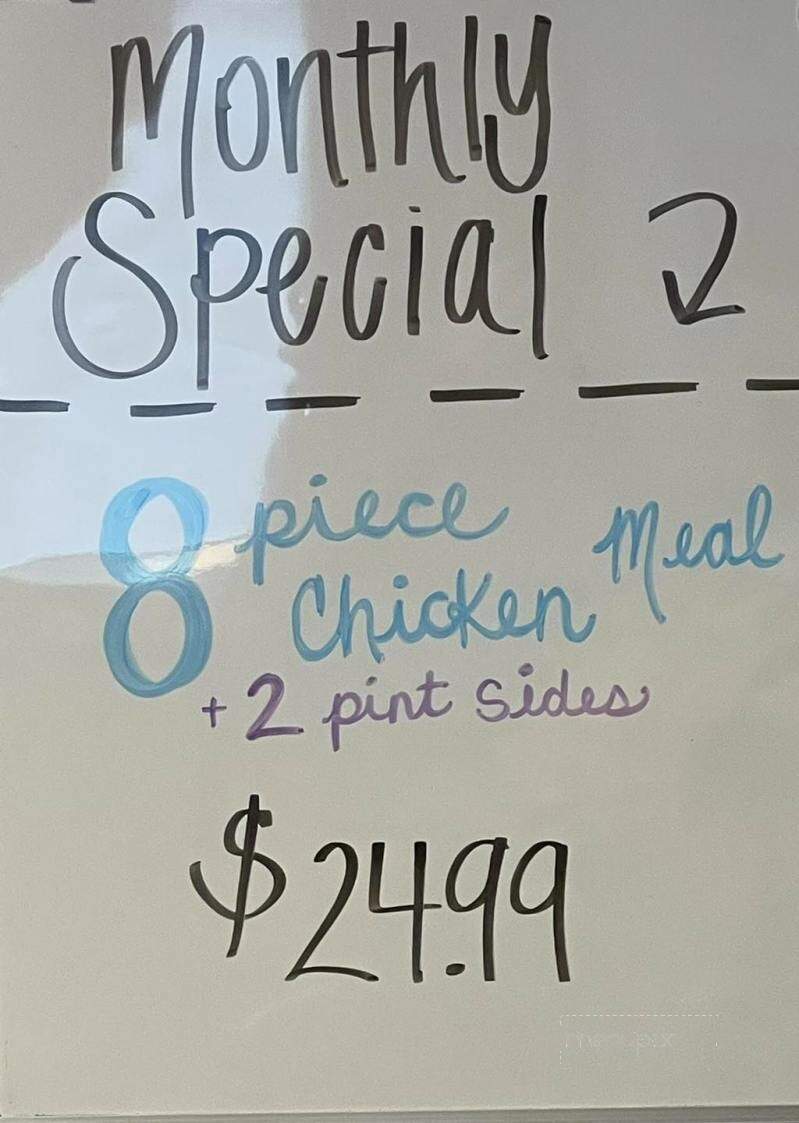 Monthly
Special
8 piece Meal
Chicken
+ 2 pint sides
$24.99